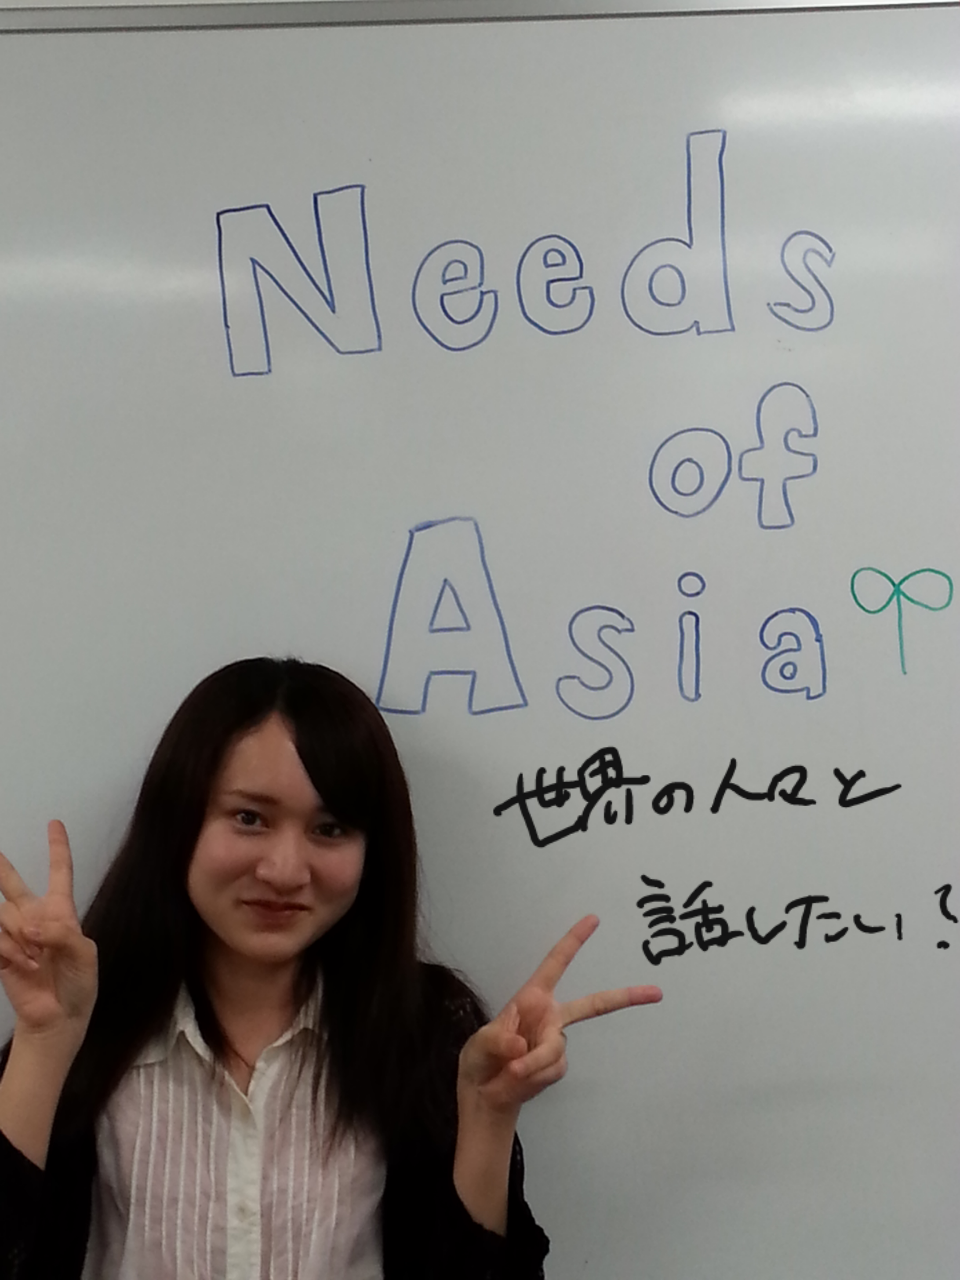 Needs
of
Asia
世界の人々と
話したい?